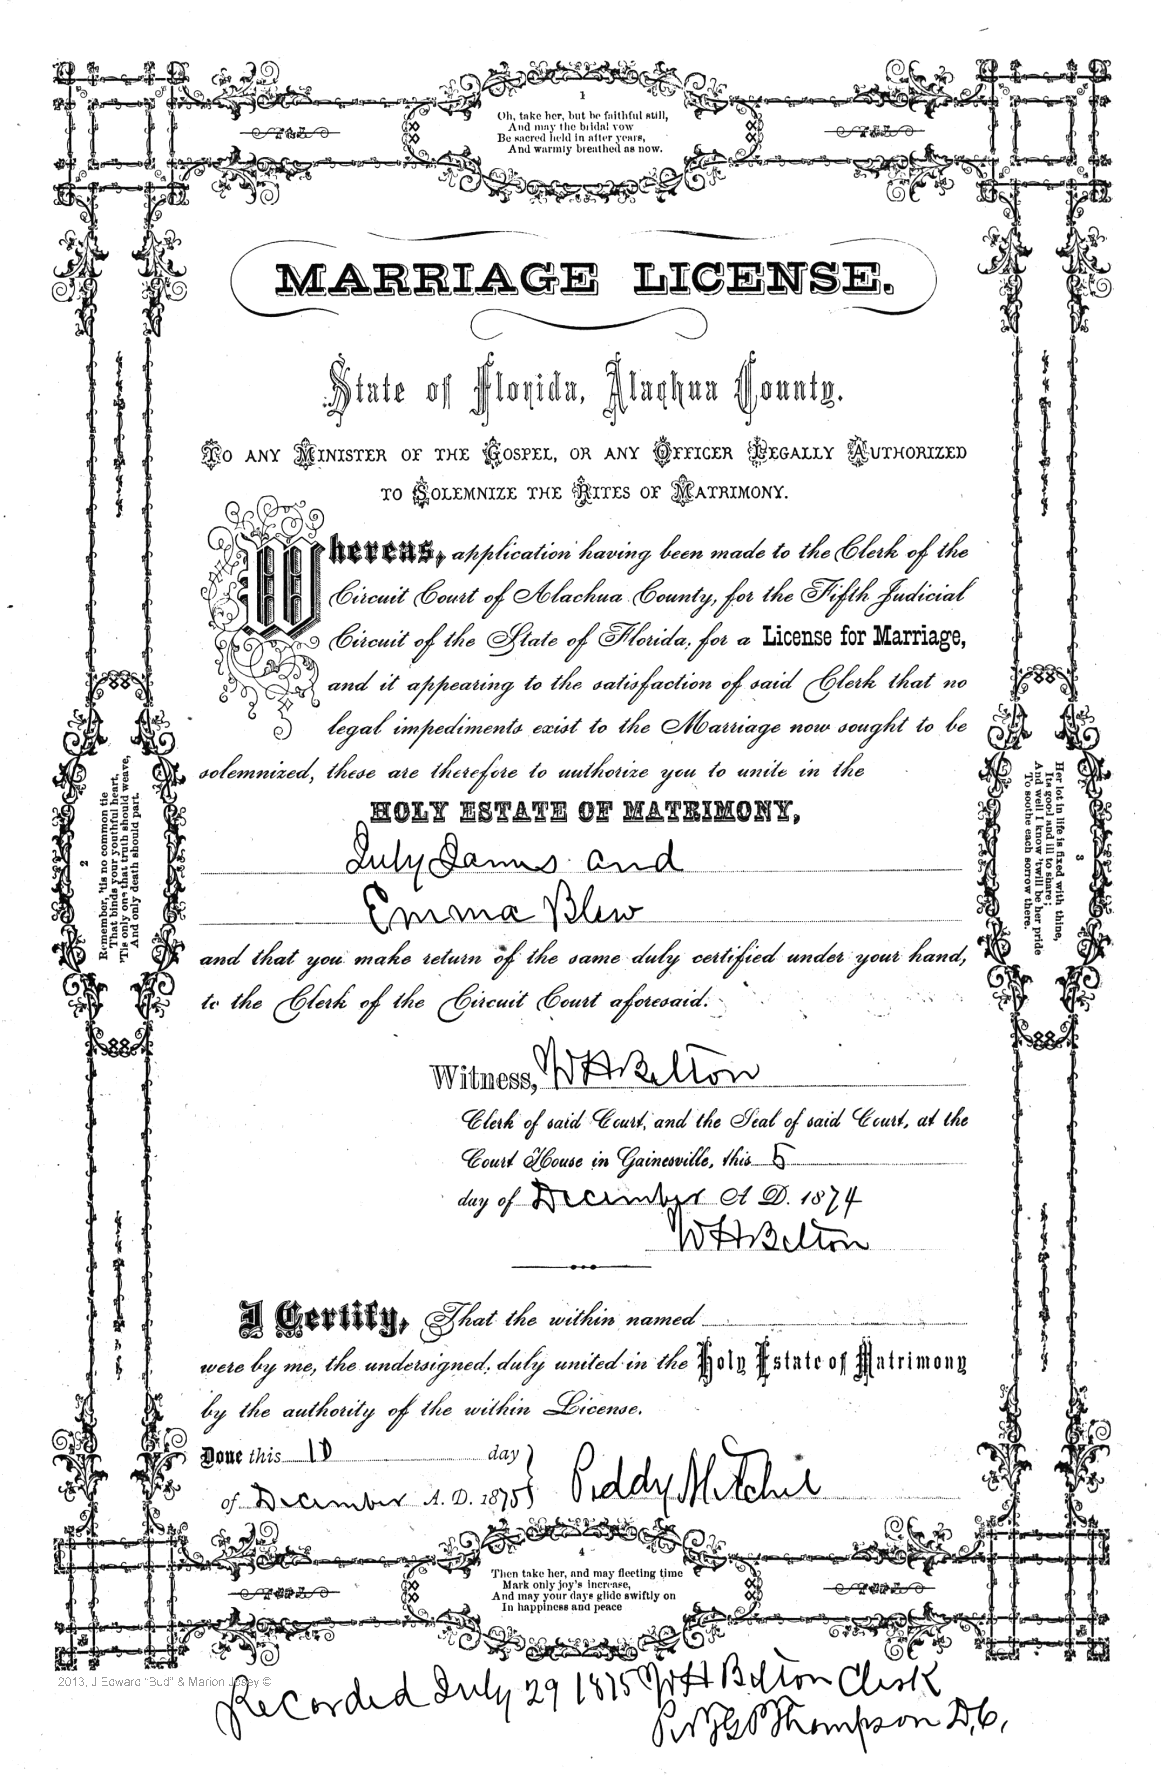 1
Oh, take her, but be faithful still,
And may the bridal vow
Be sacred held in after years,
And warmly breathed as now.
MARRIAGE LICENSE.
State of Florida, Alachua County.
TO ANY MINISTER OF THE GOSPEL, OR ANY OFFICER LEGALLY AUTHORIZED
TO SOLEMNIZE THE RITES OF MATRIMONY.
Whereas, application having been made to the Clerk of the
Circuit Court of Alachua County, for the Fifth Judicial
Circuit of the State of Florida, for a License for Marriage,
and it appearing to the satisfaction of said Clerk that no
legal impediments exist to the Marriage now sought to be
solemnized, these are therefore to authorize you to unite in the
HOLY ESTATE OF MATRIMONY,
July James and
Emma Blew
and that you make return of the same duly certified under your hand,
to the Clerk of the Circuit Court aforesaid.
2
Remember, 'tis no common tie
That binds your youthful heart,
'Tis only one that truth should weave,
And only death should part.
3
Her lot in life is fixed with thine,
Its good and ill to share;
And well I know 'twill be her pride
To soothe each sorrow there.
Witness, W H Belton
Clerk of said Court, and the Seal of said Court, at the
Court House in Gainesville, this 5
day of December A D. 1874
W H Belton
I Certify, That the within named
were by me, the undersigned, duly united in the Holy Estate of Matrimony
by the authority of the within License.
Done this 10 day
of December A. D. 1875
Peddy Mitchel
4
Then take her, and may fleeting time
Mark only joy's increase,
And may your days glide swiftly on
In happiness and peace
2013, J Edward "Bud" & Marion Josey ©
Recorded July 29 1875 W H Belton Clerk
Thompson D.C.